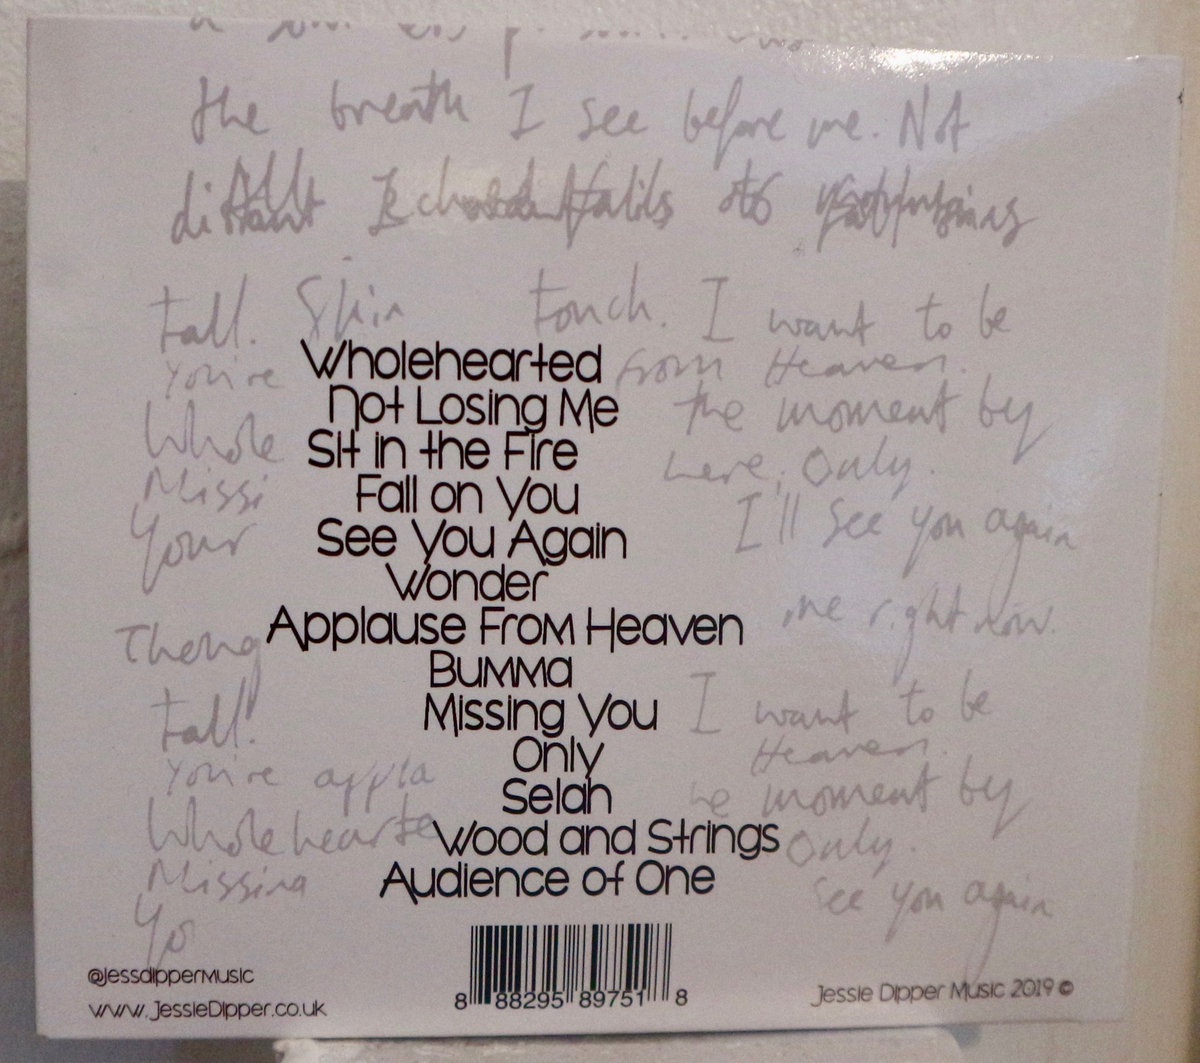 the breath I see before me. Not
tall. Skin touch. I want to be
Wholehearted
You're from Heaven.
Not Losing Me
Whole the moment by
Sit in the Fire
Missi here, Only.
Fall on You
Your I'll see you again
See You Again
Wonder
me right now.
Applause From Heaven
Bumma
tall. I want to be
Missing You
Only
You're appla Heaven.
Selah
moment by
Wholehearte Only.
Wood and Strings
Missing See you again
Audience of One
Yo
@JessDipperMusic
www.JessieDipper.co.uk
8 88295 89751 8
Jessie Dipper Music 2019 ©